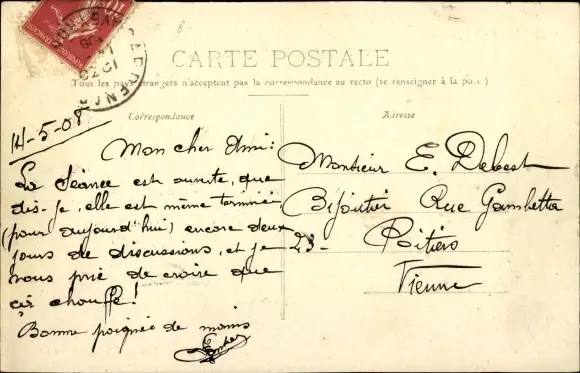 CARTE POSTALE
Tous les pays étrangers n'acceptent pas la correspondance au recto (se renseigner à la poste)
Correspondance
Adresse
14-5-08
Mon cher Ami:
La séance est ouverte, que
dis-je, elle est même terminée
(pour aujourd'hui) encore deux
jours de discussions, et je
vous prie de croire que
ça chauffe!
Bonne poignée de mains
Monsieur E. Debest
Bijoutier Rue Gambetta
23-
Poitiers
Vienne